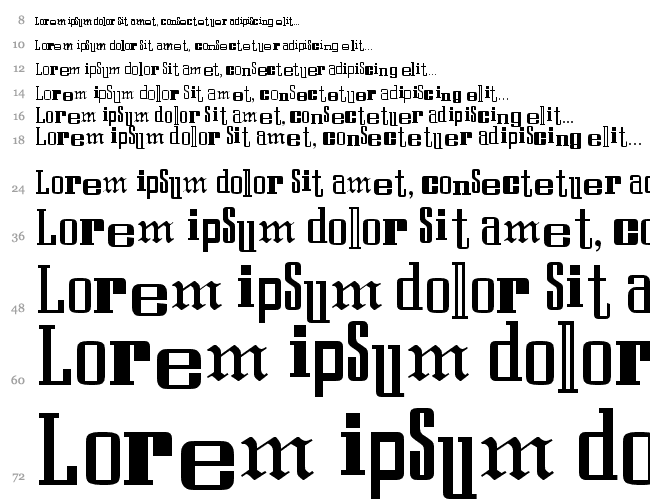 8 Lorem ipSum dolor Sit amet, conSectetuer adipiScing elit...
10 Lorem ipSum dolor Sit amet, conSectetuer adipiScing elit...
12 Lorem ipSum dolor Sit amet, conSectetuer adipiScing elit...
14 Lorem ipSum dolor Sit amet, conSectetuer adipiScing elit...
16 Lorem ipSum dolor Sit amet, conSectetuer adipiScing elit...
18 Lorem ipSum dolor Sit amet, conSectetuer adipiScing elit...
24 Lorem ipSum dolor Sit amet, conSectetuer ad
36 Lorem ipSum dolor Sit amet, co
48 Lorem ipSum dolor Sit a
60 Lorem ipSum dolor
72 Lorem ipSum do